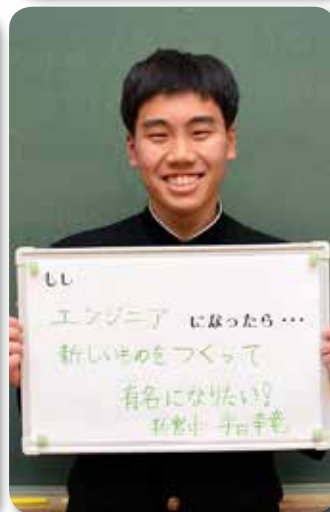 もし
エンジニア になったら・・・
新しいものをつくって
有名になりたい!